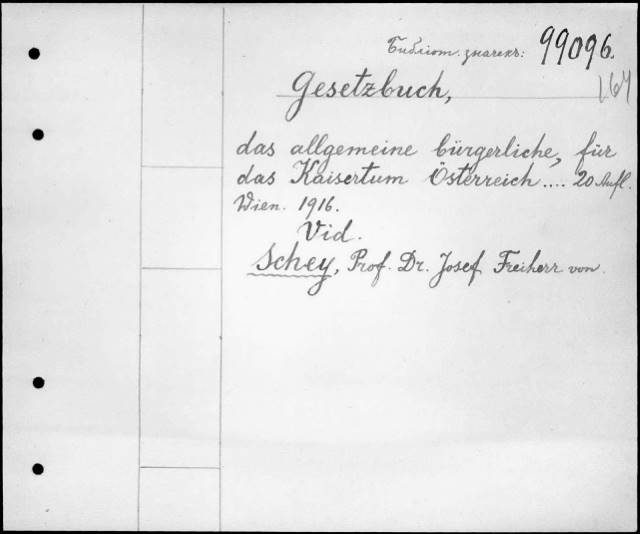 Библіот. значекъ: 99096.
Gesetzbuch, 164
das allgemeine bürgerliche, für
das Kaisertum Österreich .... 20 Aufl.
Wien. 1916.
Vid.
Schey, Prof. Dr. Josef Freiherr von.